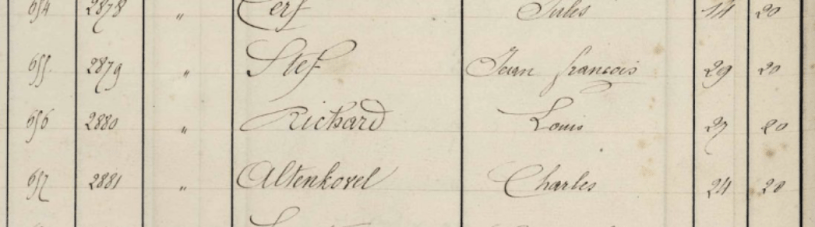 654 2878 " Cerf Jules 14 20
655 2879 " Stef Jean françois 29 20
656 2880 " Richard Louis 27 20
657 2881 " Altenhovel Charles 24 20